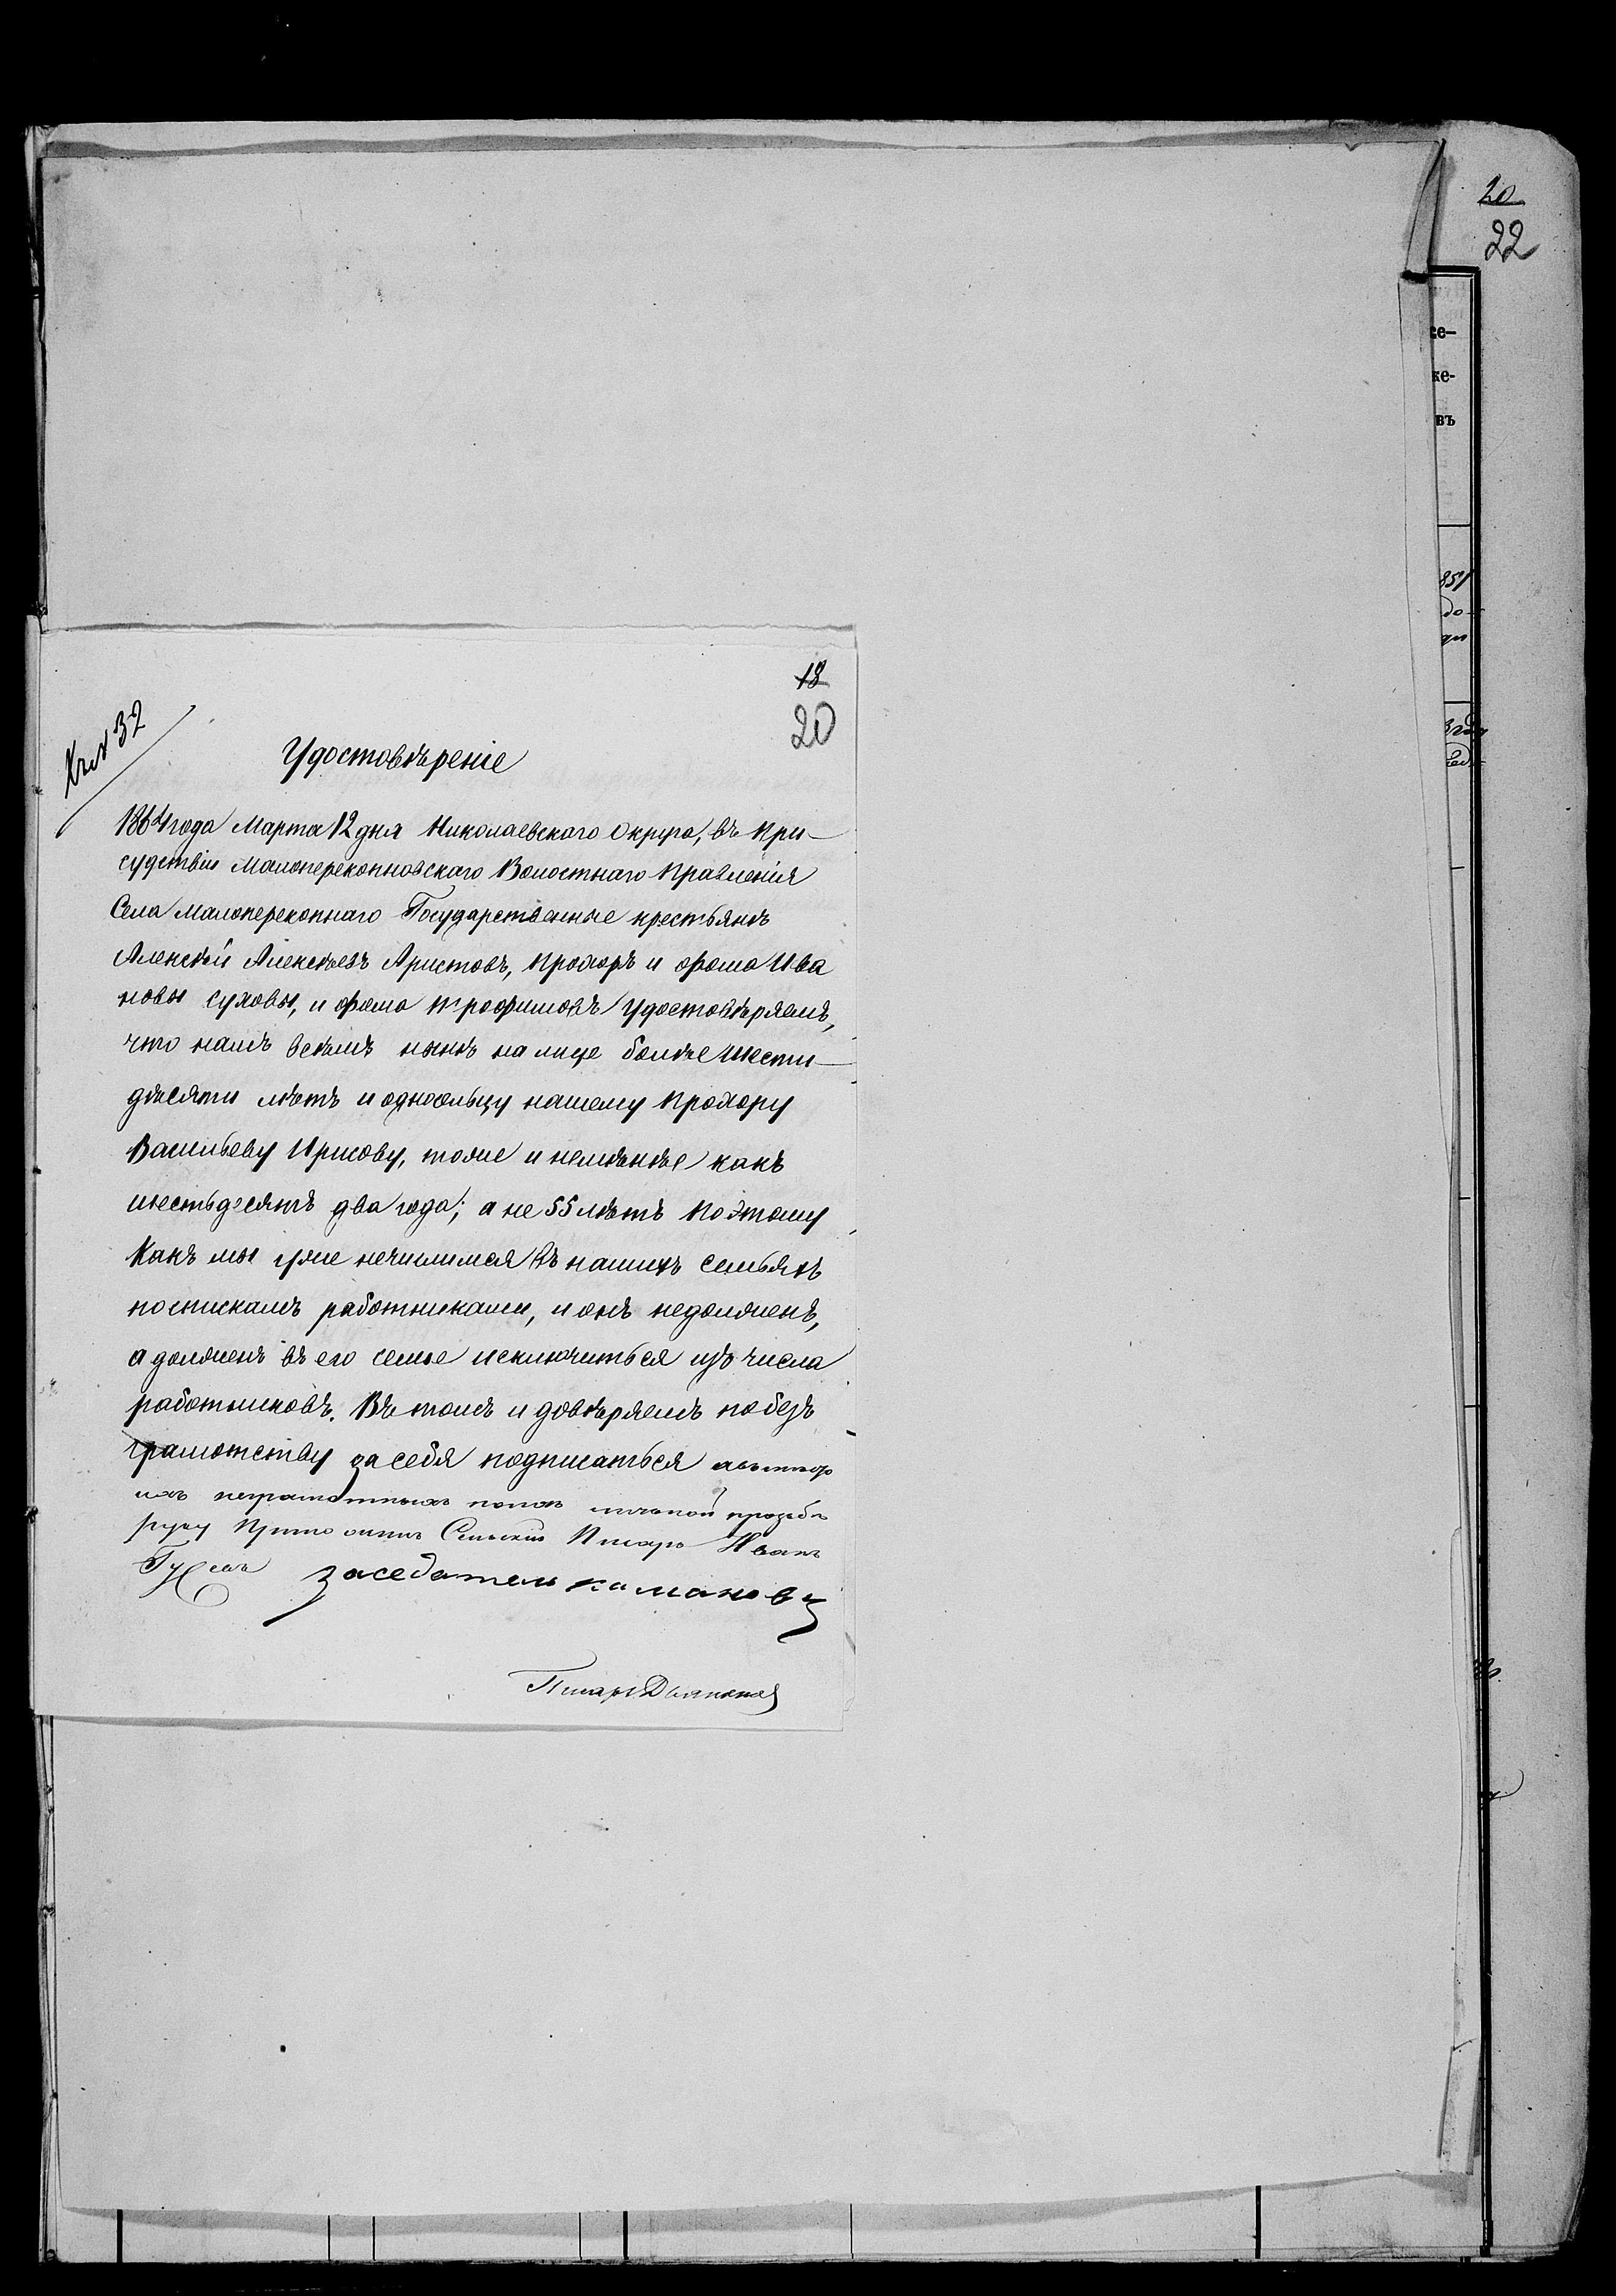 20
22
се-
ке-
въ
18
20
Къ № 32
Удостовѣреніе
1864 года Марта 12 дня Николаевского округа, въ При-
судствіи Малоперекопновскаго Волостнаго Правленія
Села Малоперекопнаго Государственные крестьянѣ
Алексѣй Алексѣевъ Аристовъ, Прохоръ и Фома Ива
новы Суховы, и Фома Трофимовъ Удостовѣряемъ,
что намъ всѣмъ нынѣ на лице болѣе шести-
десяти лѣтъ и односельцу нашему Прохору
Васильеву, тоже и неменѣе какъ
шестьдесятъ два года; а не 55 лѣтъ поэтому
Какъ мы уже нечислимся въ нашихъ семьяхъ
поспискамъ работниками, и онъ недолженъ,
а долженъ въ его семье исключиться изъ числа
работниковъ. Въ томъ и довѣряемъ по безъ
грамотству за себя подписаться
неграмотныхъ поихъ личной прозбѣ
руку Приложилъ Сельскій Писарь Иванъ
заседатель камановъ
Писарь